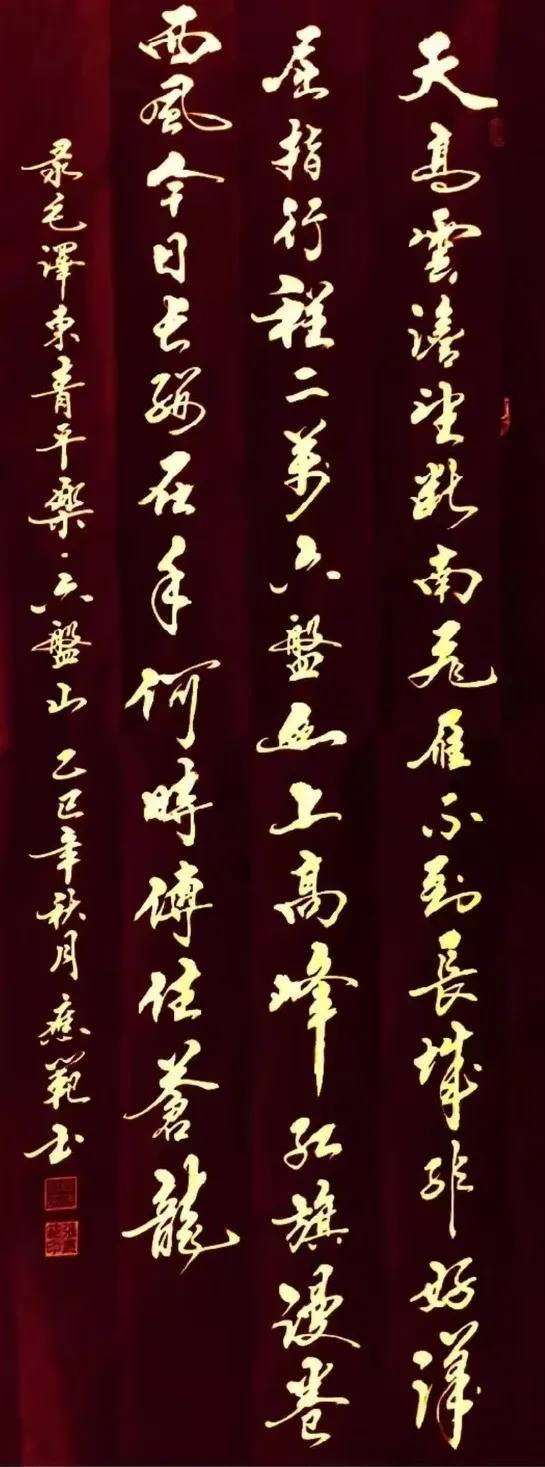 天高雲淡望断南飛雁不到長城非好漢
屈指行程二萬六盤山上高峰紅旗漫卷
西風今日長纓在手何時傅住蒼龍
录毛澤東青平樂·六盤山 乙巳年秋月 應範书